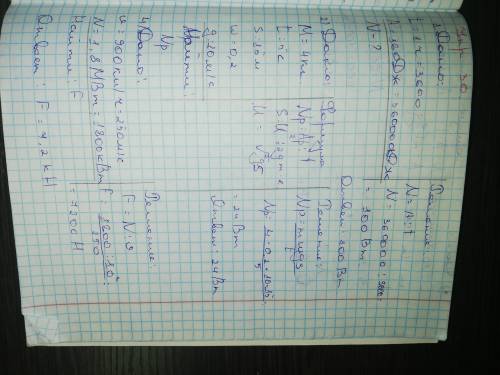 Упр 30
1) Дано:
t = 1 ч = 3600
A = 360Дж = 360000Дж
N = ?
Решение:
N = A : t
N = 360000 : 3600
= 100 Вт
Ответ: 100 Вт
2) Дано:
M = 4 кг
t = 5с
S = 15 м
μ = 0,2
g = 10 м/с
Найти:
Np
Формула
Np = Ap : t
Решение:
Np = mμgs
= 24 Вт
Ответ: 24 Вт
4) Дано:
u = 900км/ч = 250м/с
N = 1,8 МВт = 1800кВт
Найти: F
Решение:
F = N : υ
F = 1800 · 10³ :
250
= 7200 Н
Ответ: F = 7,2 кН